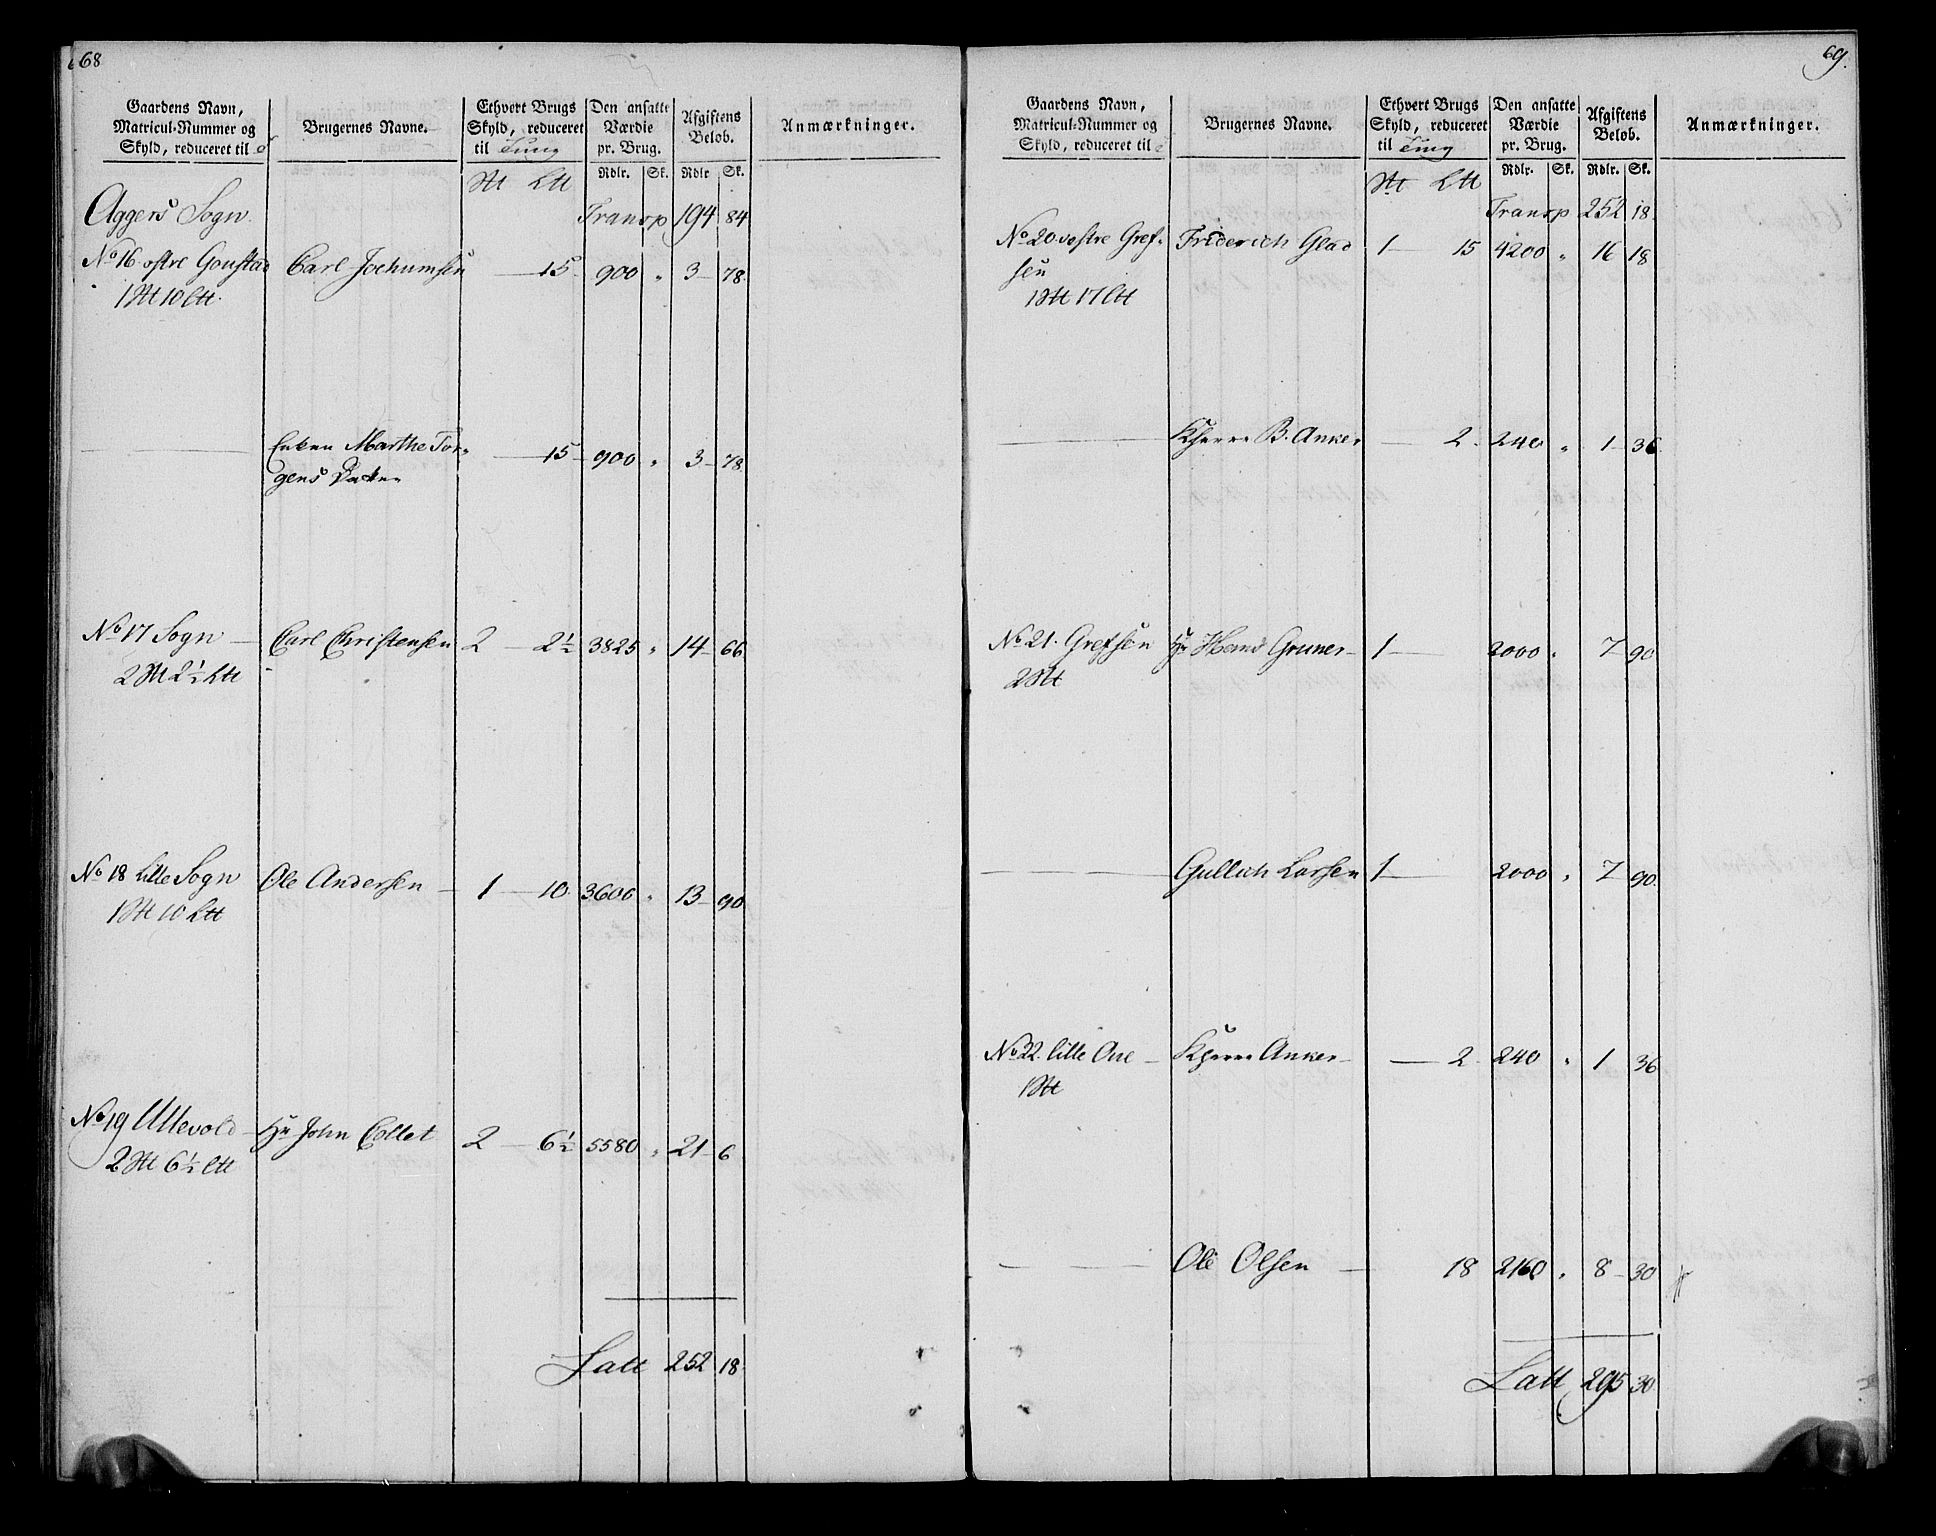 68
Gaardens Navn, Matricul-Nummer og Skyld, reduceret til
Brugernes Navne.
Ethvert Brugs Skyld, reduceret til Tung
Den ansatte Værdie pr. Brug.
Afgiftens Beløb.
Anmærkninger.
Rdlr. Sk. Rdlr Sk.
Aggers Sogn. Transp 194 84
No 16 østre Goustad Carl Jochumsen — 15 900 " 3 78.
1 10
Enken Marthe Tor- — 15 900 " 3 78
gens
No 17 Sogn — Carl Christensen 2 — 2½ 3825 " 14 66
2 2½
No 18 Lille Sogn Ole Andersen — 1 — 10 3600 " 13 90
1 10
No 19 Ullevold — Hr John Collet 2 — 6½ 5580 " 21 6
2 6½
Latt 252 18
69.
Gaardens Navn, Matricul-Nummer og Skyld, reduceret til
Brugernes Navne.
Ethvert Brugs Skyld, reduceret til Tung
Den ansatte Værdie pr. Brug.
Afgiftens Beløb.
Anmærkninger.
Rdlr. Sk. Rdlr. Sk.
Transp 252 18.
No 20 vestre Gref- Friderich Glad 1 — 15 4200 " 16 18
sen
1 17
B. Anker — 2. 240 " 1 36
No 21. Grefsen Hr Hans Gruner — 1 — 2000 " 7 90
2
Gullich Larsen 1 — 2000 " 7 90.
No 22. lille — Anker — 2 240 " 1 36
1
Ole Olsen — 18 2160 " 8 30
Latt 295 30